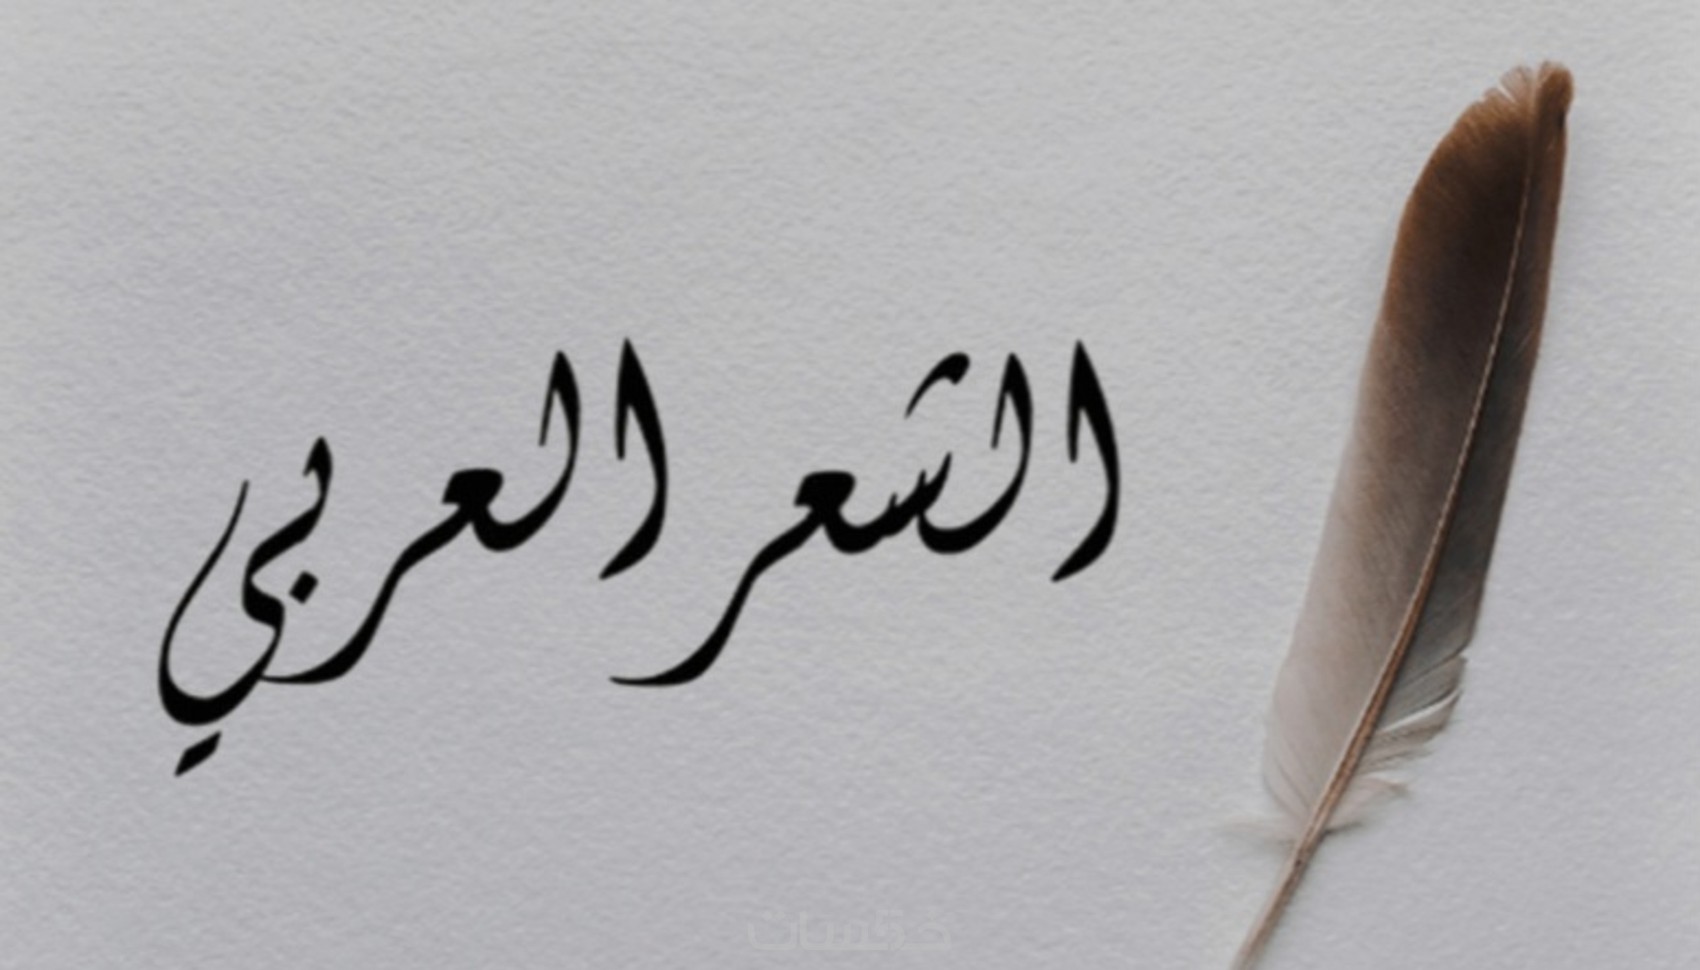 الشعر العربي
خمسات